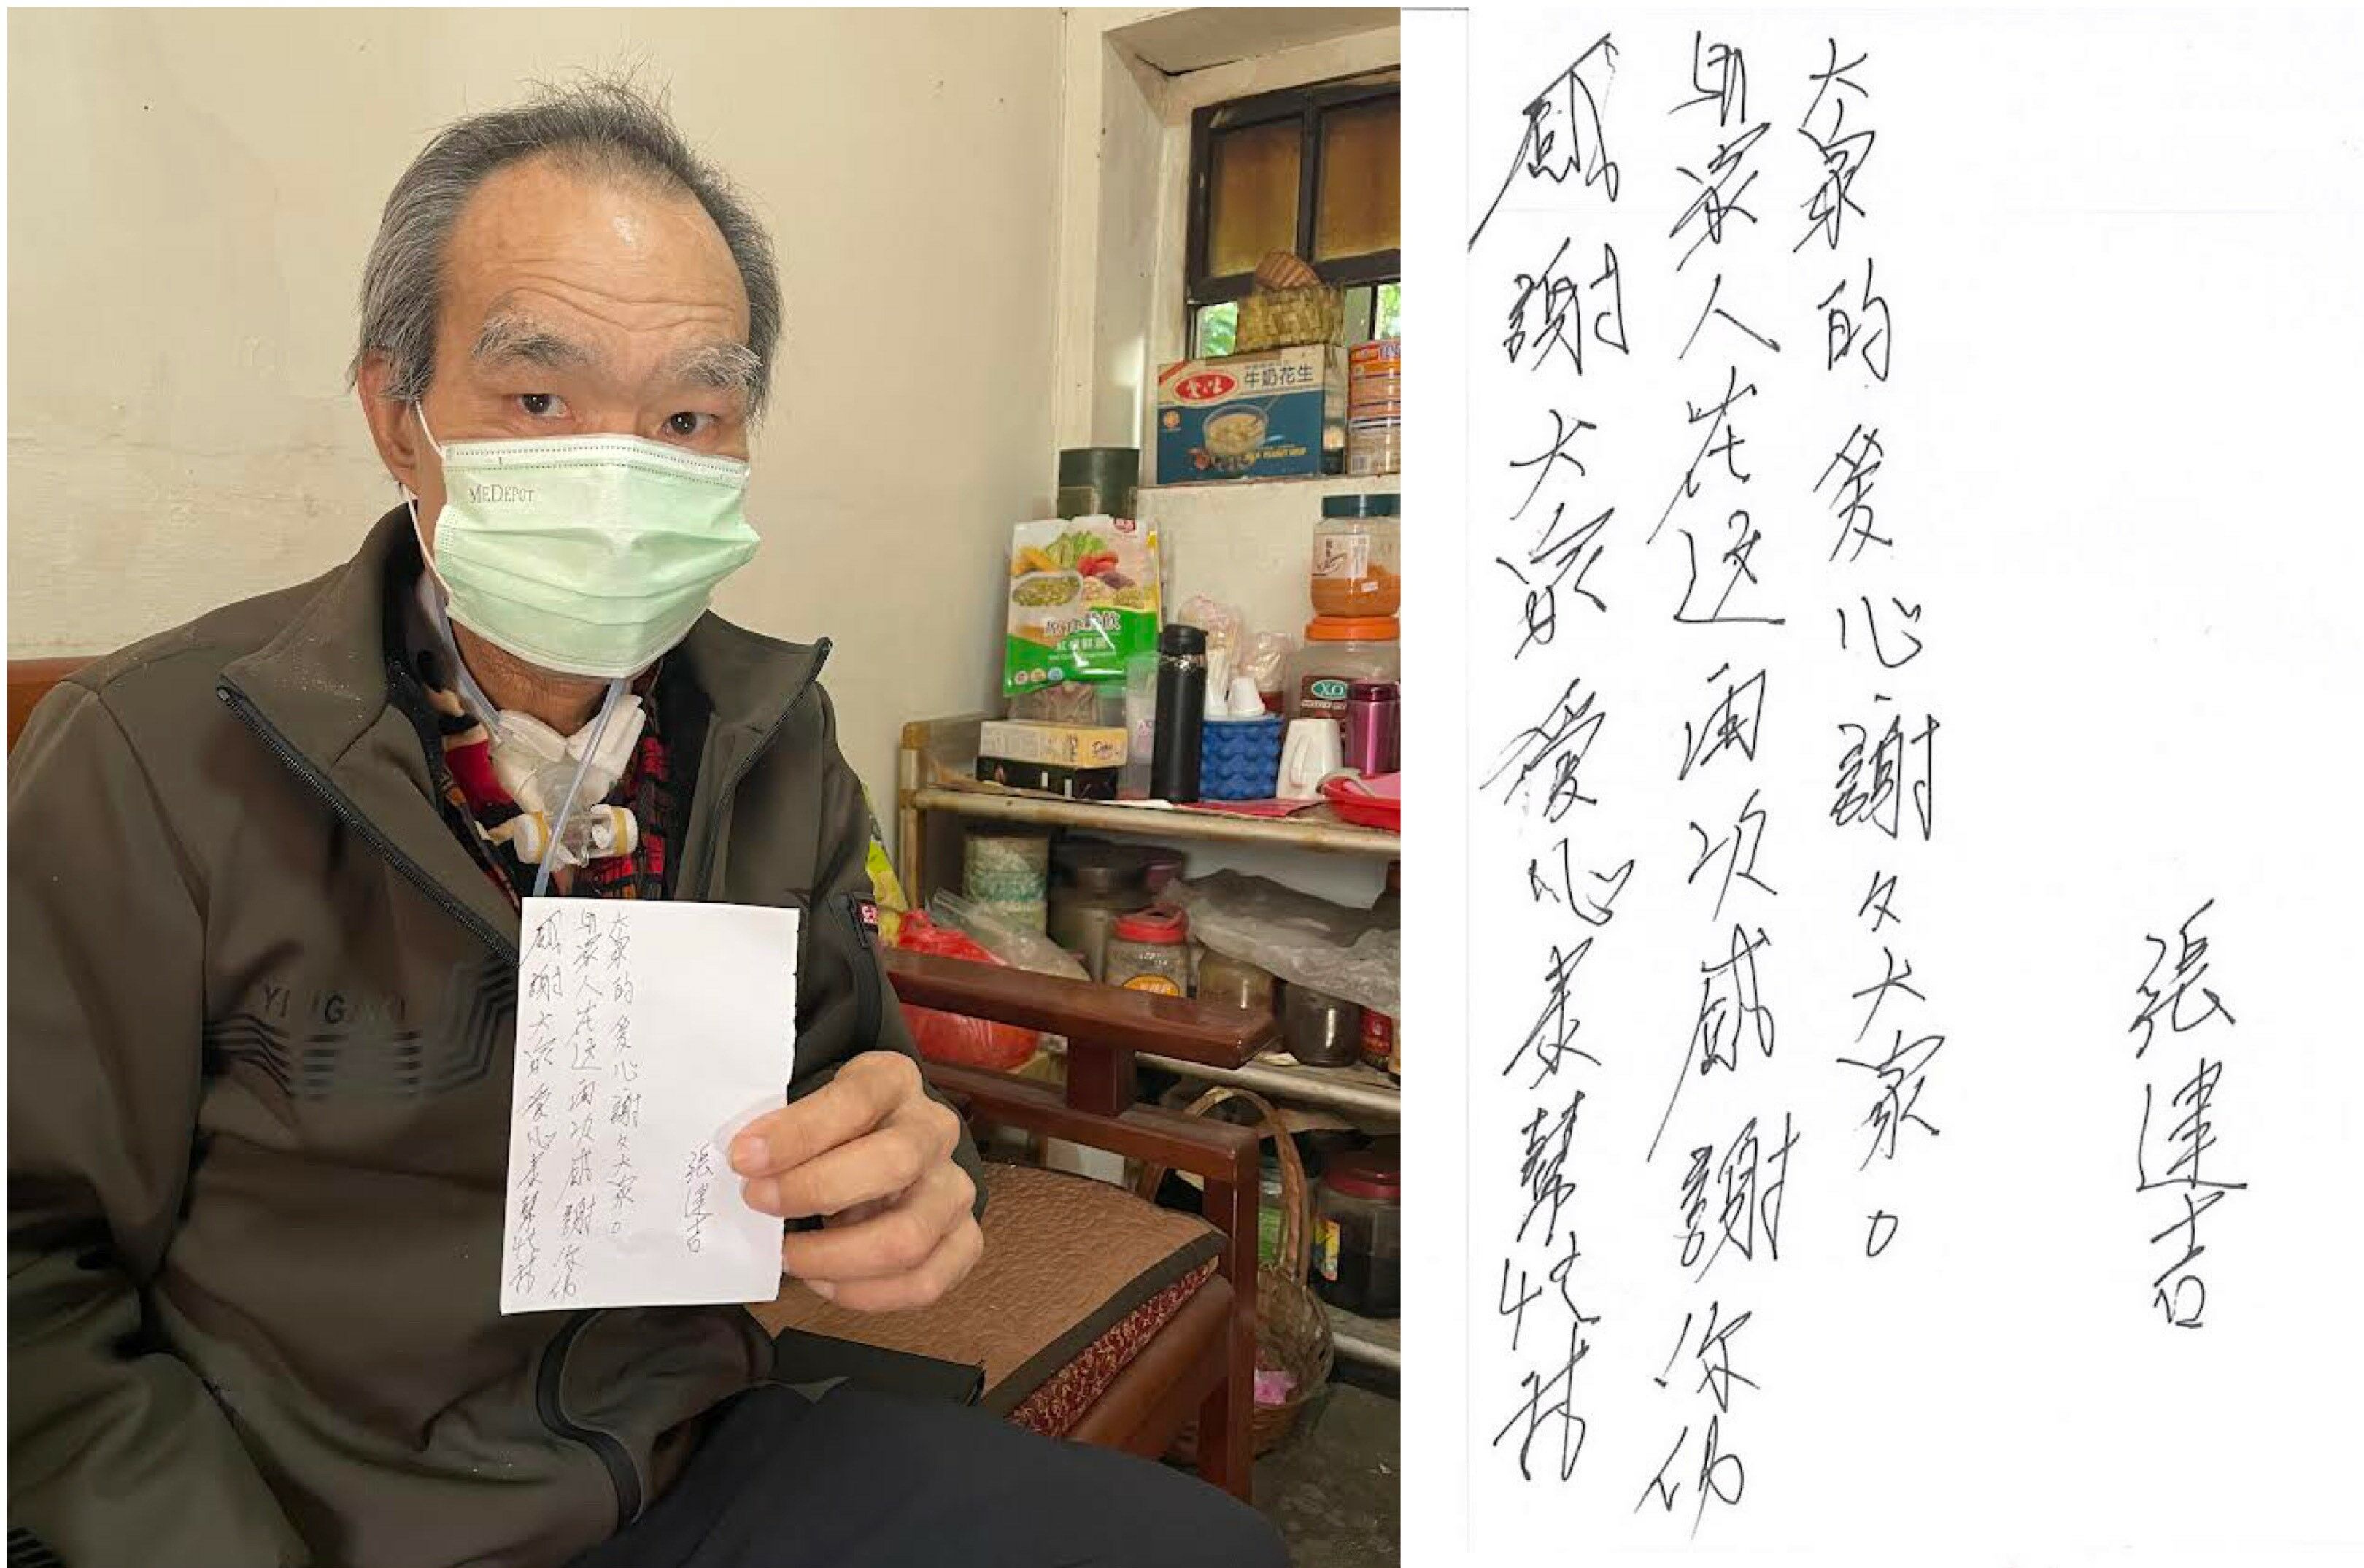 MEDEPOT
牛奶花生
PEANUT SOUP
XO
感謝大家愛心来幫忙我
家人在这再次感謝你们
大家的爱心謝々大家。
張建吉
感謝大家愛心来幫忙我
家人在这再次感謝你们
大家的爱心謝々大家。
張建吉